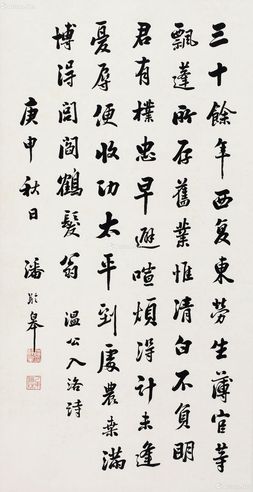 三十餘年西复東勞生薄宦等
飄蓬所存舊業惟清白不負明
君有樸忠早避喧煩淂計未逢
憂辱便收功太平到處農桒滿
博淂閭閻鶴髮翁 溫公入洛詩
庚申秋日 潘齡皋